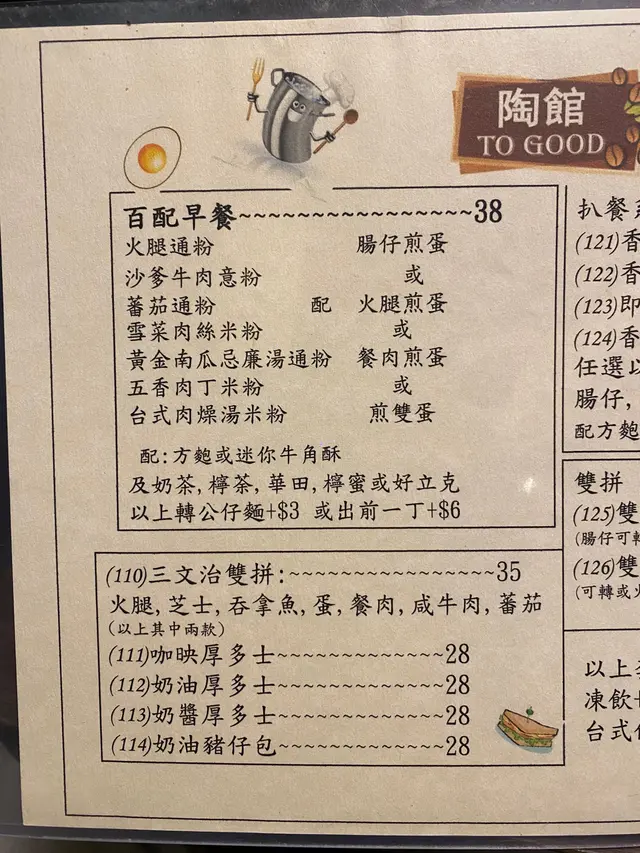 陶館
TO GOOD
百配早餐~~~~~~~~~~~~~~~~38
火腿通粉 腸仔煎蛋
沙爹牛肉意粉 或
蕃茄通粉 配 火腿煎蛋
雪菜肉絲米粉 或
黃金南瓜忌廉湯通粉 餐肉煎蛋
五香肉丁米粉 或
台式肉燥湯米粉 煎雙蛋
配:方麭或迷你牛角酥
及奶茶,檸茶,華田,檸蜜或好立克
以上轉公仔麵+$3 或出前一丁+$6
(110)三文治雙拼:~~~~~~~~~~~~~~~35
火腿,芝士,吞拿魚,蛋,餐肉,咸牛肉,蕃茄
(以上其中兩款)
(111)咖映厚多士~~~~~~~~~~~~28
(112)奶油厚多士~~~~~~~~~~~~28
(113)奶醬厚多士~~~~~~~~~~~~28
(114)奶油豬仔包~~~~~~~~~~~~28
扒餐
(121)香
(122)香
(123)即
(124)香
任選以
腸仔,
配方麭
雙拼
(125)雙
(腸仔可轉
(126)雙
(可轉或火
以上
凍飲
台式